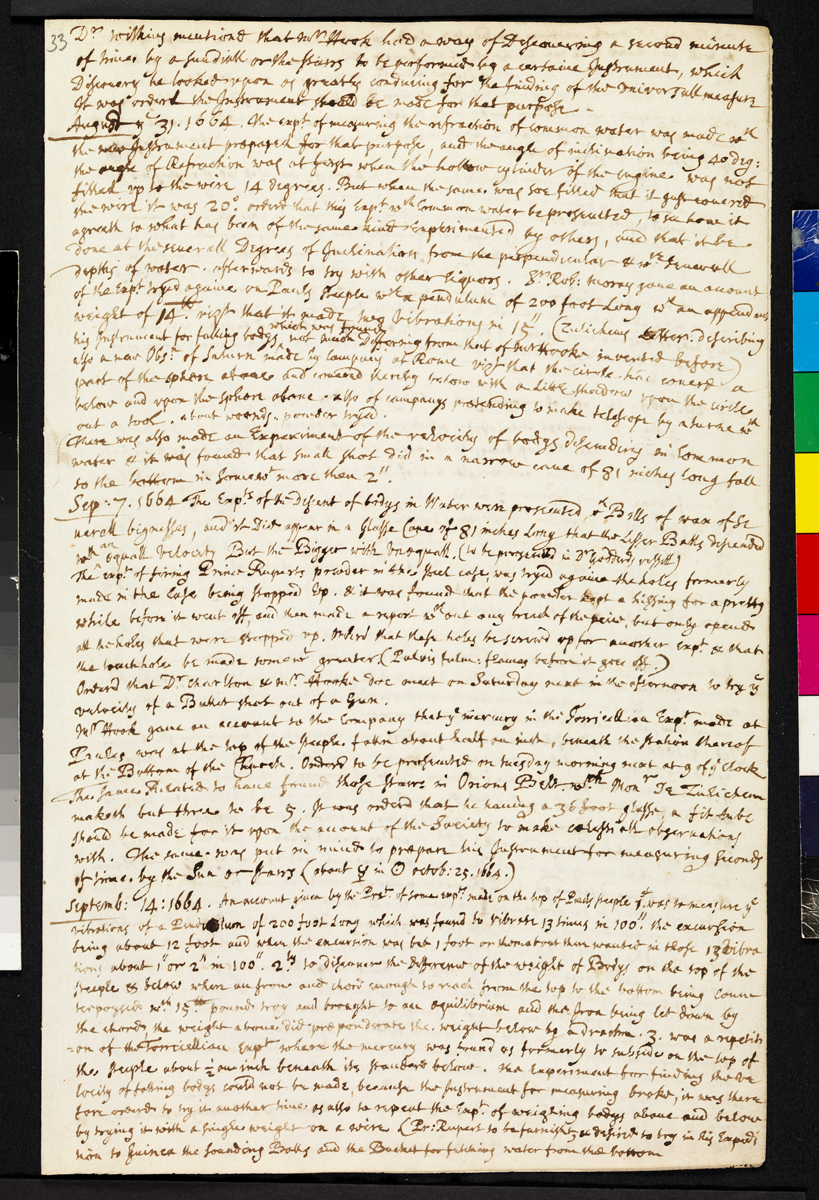 33
Dr. Wilkins mentiond that Mr Hook had a way of Discovering a second minute
of time by a sundiall or the stars to be performed by a certaine Instrument, which
Discovery he looked upon as greatly conducing for the finding of the universall measure
It was orderd the Instrument should be made for that purpose
August ye 31. 1664. The expt of measuring the refraction of common water was made wth
the new Instrument prepared for that purpose, and the angle of inclination being 40 deg:
the angle of Refraction was at first when the hollow cylinder of the engine was not
filled up to the wire 14 degrees. But when the same was soe filled that it just covered
the wire it was 20°. orderd that this Expt wth Common water be prosecuted, to see how it
agreeth to what has been of the same kind Experimented by others, and that it be
done at the severall Degrees of Inclination from the perpendicular & wth severall
depths of water. afterwards to try with other liquors. Sr. Rob: Moray gave an account
of the Expt tryd againe on Pauls steeple wth a pendulum of 200 foot Long wth an appendant
weight of 14 lb. vizt that it made two vibrations in 15". (Zulichems letters: describing
his Instrument for falling bodys which was found not much Differring from that of Mr Hooke invented before)
also a new Obs: of Saturn made by Campany at Rome vizt that the circle had coverd a
part of the sphere above and covered thereby below with a little shadow upon the circle
below and upon the sphere above. also of campanys pretending to make telescope by a turne wth
out a tool. about wounds. powder tryd.
There was also made an Experiment of the velocity of bodys descending in Common
water & it was found that small shot did in a narrow cane of 81 inches long fall
to the bottom in somewt more then 2".
Sep: 7. 1664 The Expts of the descent of bodys in Water were prosecuted wth Balls of wax of se
verall bignesses, and it Did appear in a Glasse Cane of 81 inches Long that the Lesser Balls descended
wth an equall velocity But the Bigger with unequall. (to be prosecuted in Dr Goddards vessell)
The expt of firing Prince Ruperts powder in the steel case, was tryd againe the holes formerly
made in the case being stopped up. & it was found that the powder kept a hissing for a pretty
while before it went off, and then made a report wth out any breach of the peice, but only opend
all the holes that were stopped up. Orderd that these holes be screwed up for another Expt & that
the touchhole be made somewt greater. (Pulvis fulm: flames before it goes off.)
Orderd that Dr Charlton & Mr. Hooke doe meet on Saturday next in the afternoon to try ye
velocity of a Bullet shot out of a Gun.
Mr Hook gave an account to the Company that ye mercury in the Torricellian Expt made at
Paules was at the top of the steeple fallen about half an inch, beneath the station thereof
at the Bottom of the Church. Ordered to be prosecuted on tuesday morning next at 9 of ye clock
The same Related to have found those starrs in Orions Belt. wch Monr De Zulichem
maketh but three to be 5. It was orderd that he having a 36 foot glasse, a fit tube
should be made for it upon the account of the Society to make celestiall observations
with. The same was put in mind to prepare his Instrument for measuring seconds
of time by the Sun or stars (about ☿ in ☉ octob: 25. 1664.)
Septemb: 14: 1664. An account given by the Prest of some expts made on the top of Pauls steeple 1. was to measure ye
vibrations of a Pendulum of 200 foot Long which was found to vibrate 13 times in 100". the excursion
being about 12 foot and when the excursion was but 1 foot or thereabout there wanted in those 13 vibra
tions about 1" or 2" in 100". 2ly to discover the difference of the weight of Bodys on the top of the
steeple & below where an Irone and chord enough to reach from the top to the bottom being coun
terpoysed wth 15 lb pound troy and brought to an equilibrium and the Iron being let down by
the chord, the weight above did preponderate the weight below by a drachm. 3. was a repetiti
=on of the Torricellian Expt where the mercury was found as formerly to subside on the top of
the steeple about ½ an inch beneath its standard below. the Experiment for finding the ve
locity of falling bodys could not be made, because the Instrument for measuring broke, it was there
fore orderd to try it another time as also to repeat the Expt. of weighing bodys above and below
by trying it with a single weight on a wire (Pr: Rupert to be furnisht & desired to try in his Expedi
tion to Guinea the sounding Balls and the Bucket for fetching water from the bottom